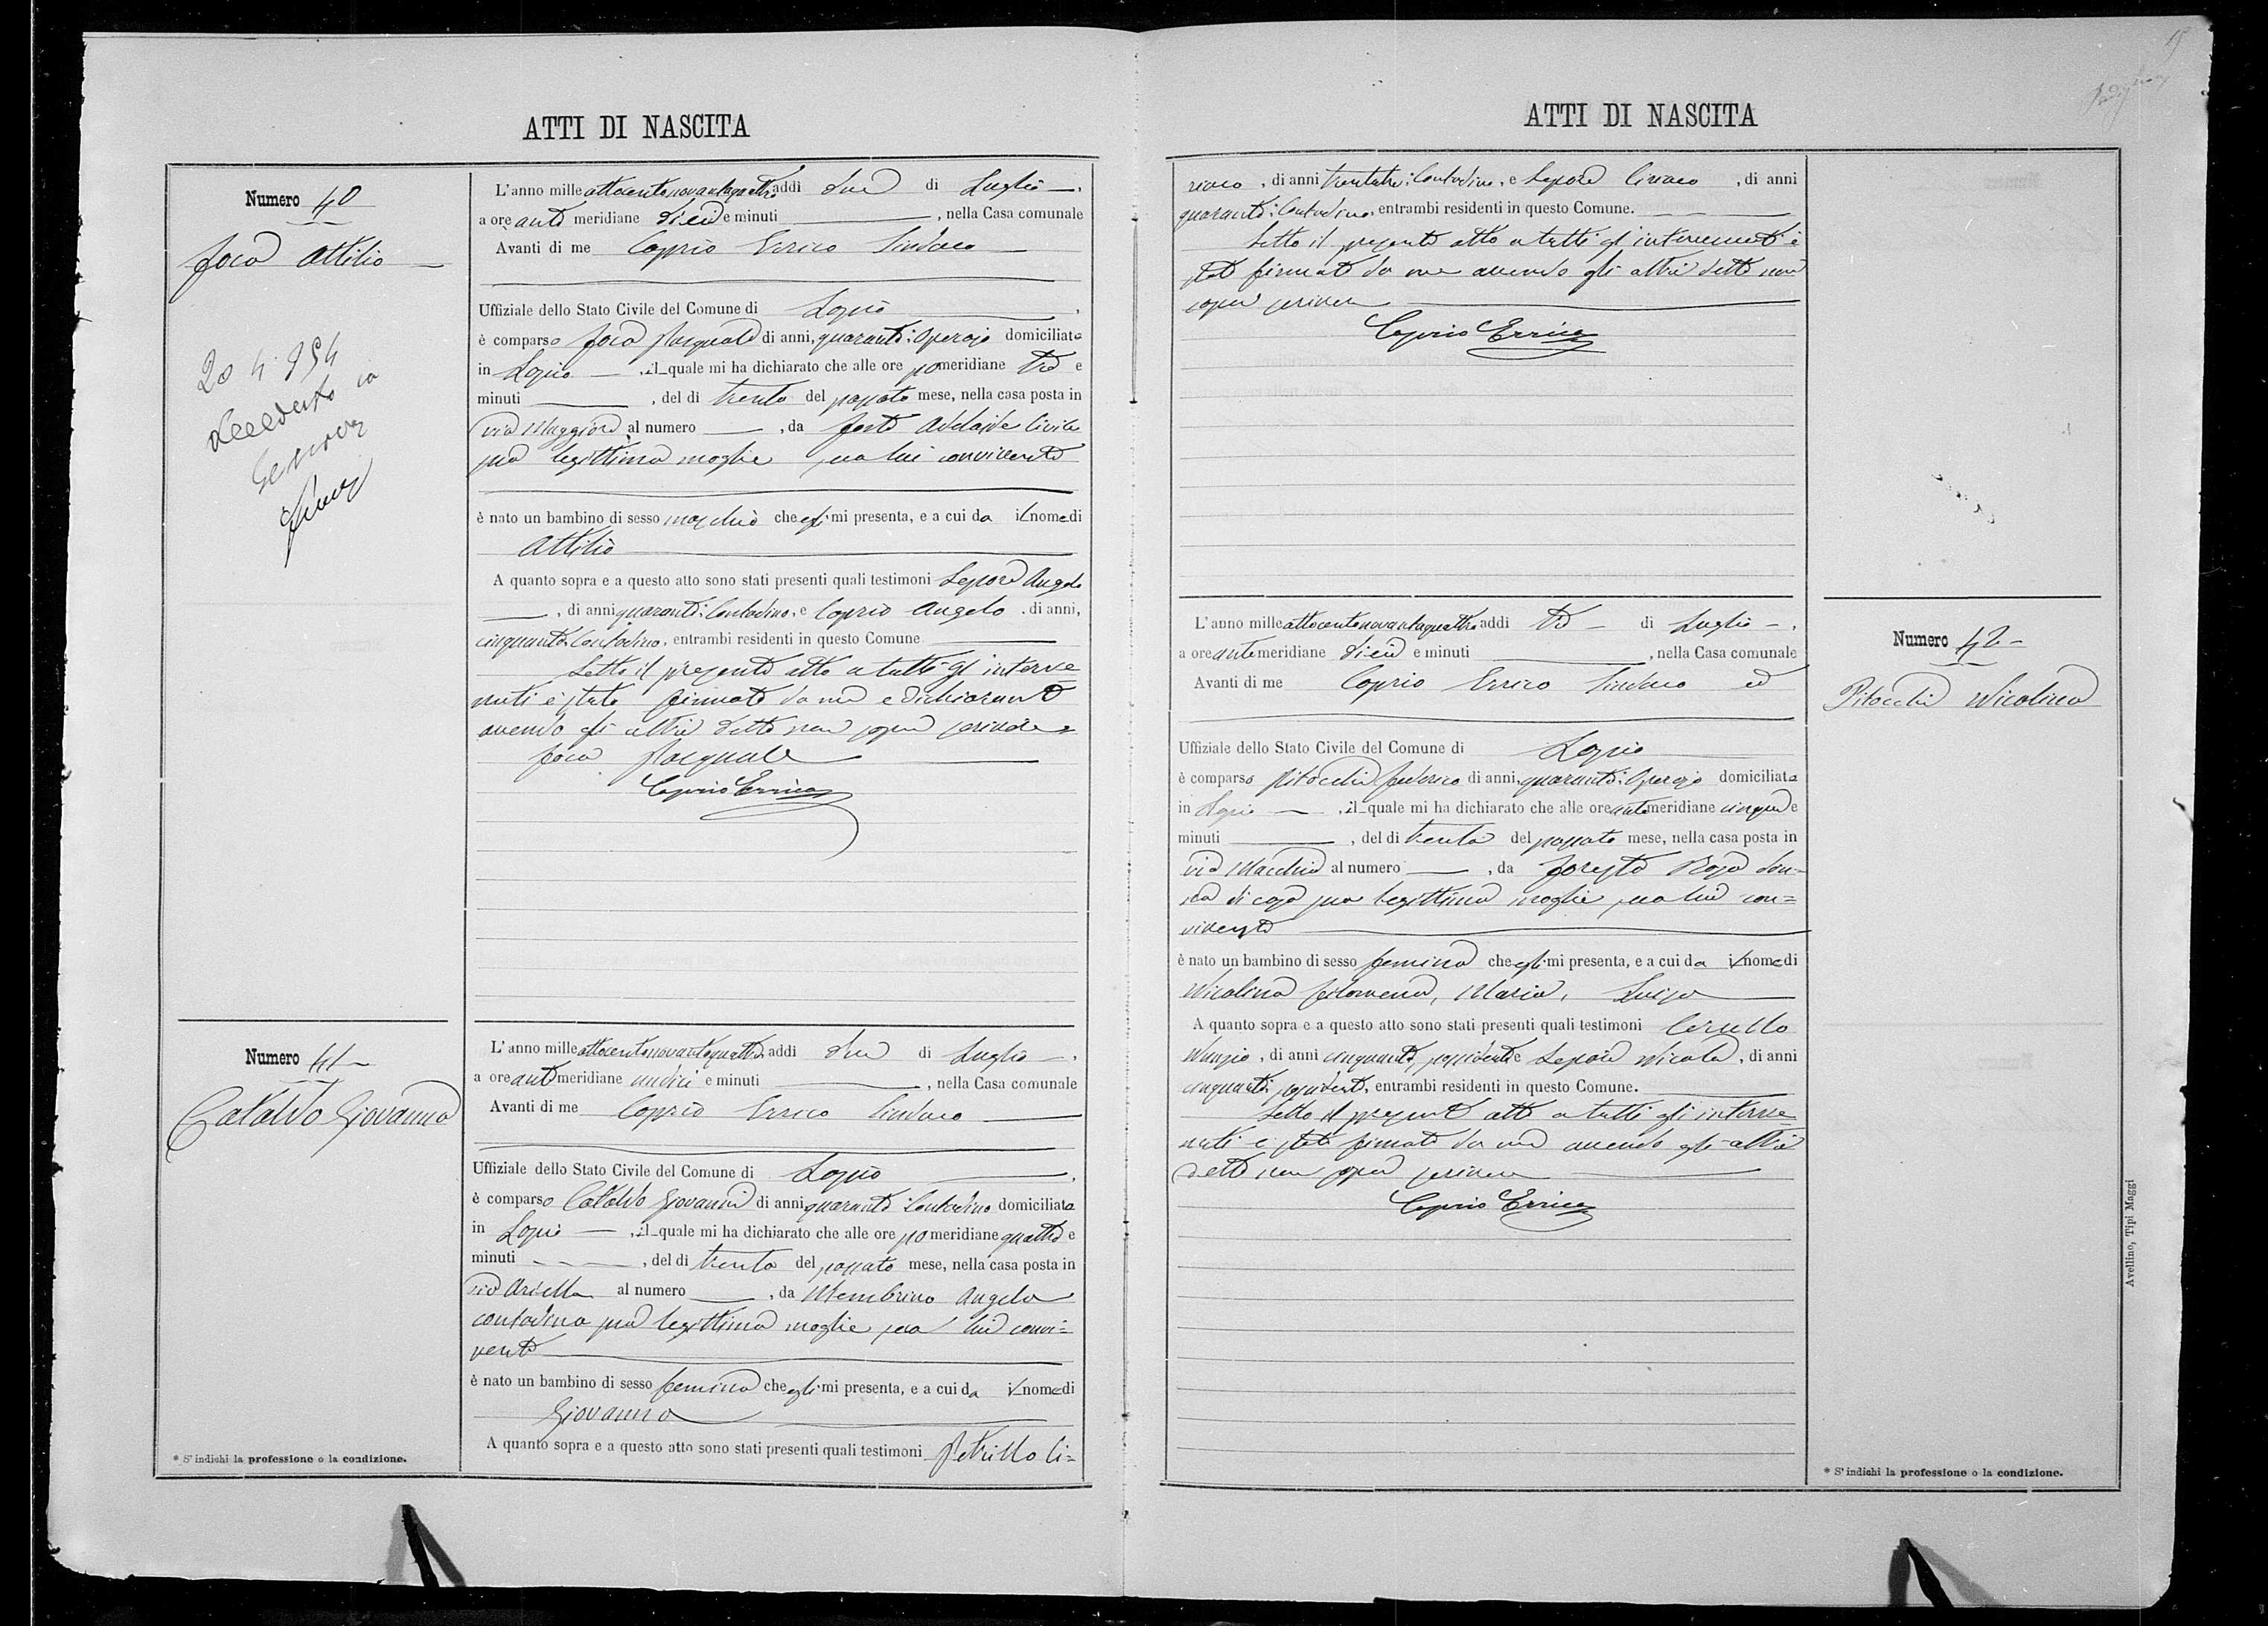 ATTI DI NASCITA
Numero 40
Foca Attilio
20 4 954
deceduto in
Genova
L'anno mille ottocentonovantaquattro, addì due di Luglio,
a ore ante meridiane dieci e minuti , nella Casa comunale
Avanti di me Caprio Errico Sindaco
Uffiziale dello Stato Civile del Comune di Lapio
è comparso Foca Pasquale di anni, quaranta: Operajo domiciliato
in Lapio , il quale mi ha dichiarato che alle ore pomeridiane tre e
minuti , del dì trenta del passato mese, nella casa posta in
via Maggiore al numero , da Forte Adelaide Civile
sua legittima moglie seco lui convivente
è nato un bambino di sesso maschio che egli mi presenta, e a cui da il nome di
Attilio
A quanto sopra e a questo atto sono stati presenti quali testimoni Lepore Angelo
, di anni quaranta: Contadino, e Caprio Angelo , di anni,
cinquanta Contadino, entrambi residenti in questo Comune
Letto il presente atto a tutti gl'interve=
nuti è stato firmato da me e dichiarante
avendo gli altri detto non sapere scrivere
Foca Pasquale
Caprio Errico
Numero 41
Cataldo Giovanna
L'anno mille ottocentonovantaquattro, addì due di Luglio,
a ore antemeridiane undici e minuti , nella Casa comunale
Avanti di me Caprio Errico Sindaco
Uffiziale dello Stato Civile del Comune di Lapio
è comparso Cataldo Giovanni di anni quaranta Contadino domiciliato
in Lapio , il quale mi ha dichiarato che alle ore pomeridiane quattro e
minuti , del dì trenta del passato mese, nella casa posta in
via Ariella al numero , da Membrino Angela
contadina sua legittima moglie seco lui convi=
vente
è nato un bambino di sesso femina che egli mi presenta, e a cui da il nome di
Giovanna
A quanto sopra e a questo atto sono stati presenti quali testimoni Petrillo Ci=
* S'indichi la professione o la condizione.
ATTI DI NASCITA
riaco, di anni trentatre: Contadino, e Lepore Ciriaco , di anni
quaranta: Contadino, entrambi residenti in questo Comune.
Letto il presente atto a tutti gl'intervenuti è
stato firmato da me avendo gli altri detto non
saper scrivere
Caprio Errico
L'anno mille ottocentonovantaquattro, addì tre di Luglio,
a ore antemeridiane dieci e minuti , nella Casa comunale
Avanti di me Caprio Errico Sindaco ed
Uffiziale dello Stato Civile del Comune di Lapio
è comparso Pitocchi Federico di anni, quaranta: Operajo domiciliato
in Lapio , il quale mi ha dichiarato che alle ore antemeridiane cinque e
minuti , del dì trenta del passato mese, nella casa posta in
via Macchia al numero , da Foresta Rosa don=
na di casa sua legittima moglie seco lui con=
vivente
è nato un bambino di sesso femina che egli mi presenta, e a cui da il nome di
Nicolina Filomena, Maria, Luisa
A quanto sopra e a questo atto sono stati presenti quali testimoni Cirullo
Nunzio, di anni cinquanta, possidente e Lepore Nicola, di anni
cinquanta possidente, entrambi residenti in questo Comune.
Letto il presente atto a tutti gli interve=
nuti è stato firmato da me avendo gli altri
detto non saper scrivere
Caprio Errico
Numero 42
Pitocchi Nicolina
* S'indichi la professione o la condizione.
Avellino, Tipi Maggi